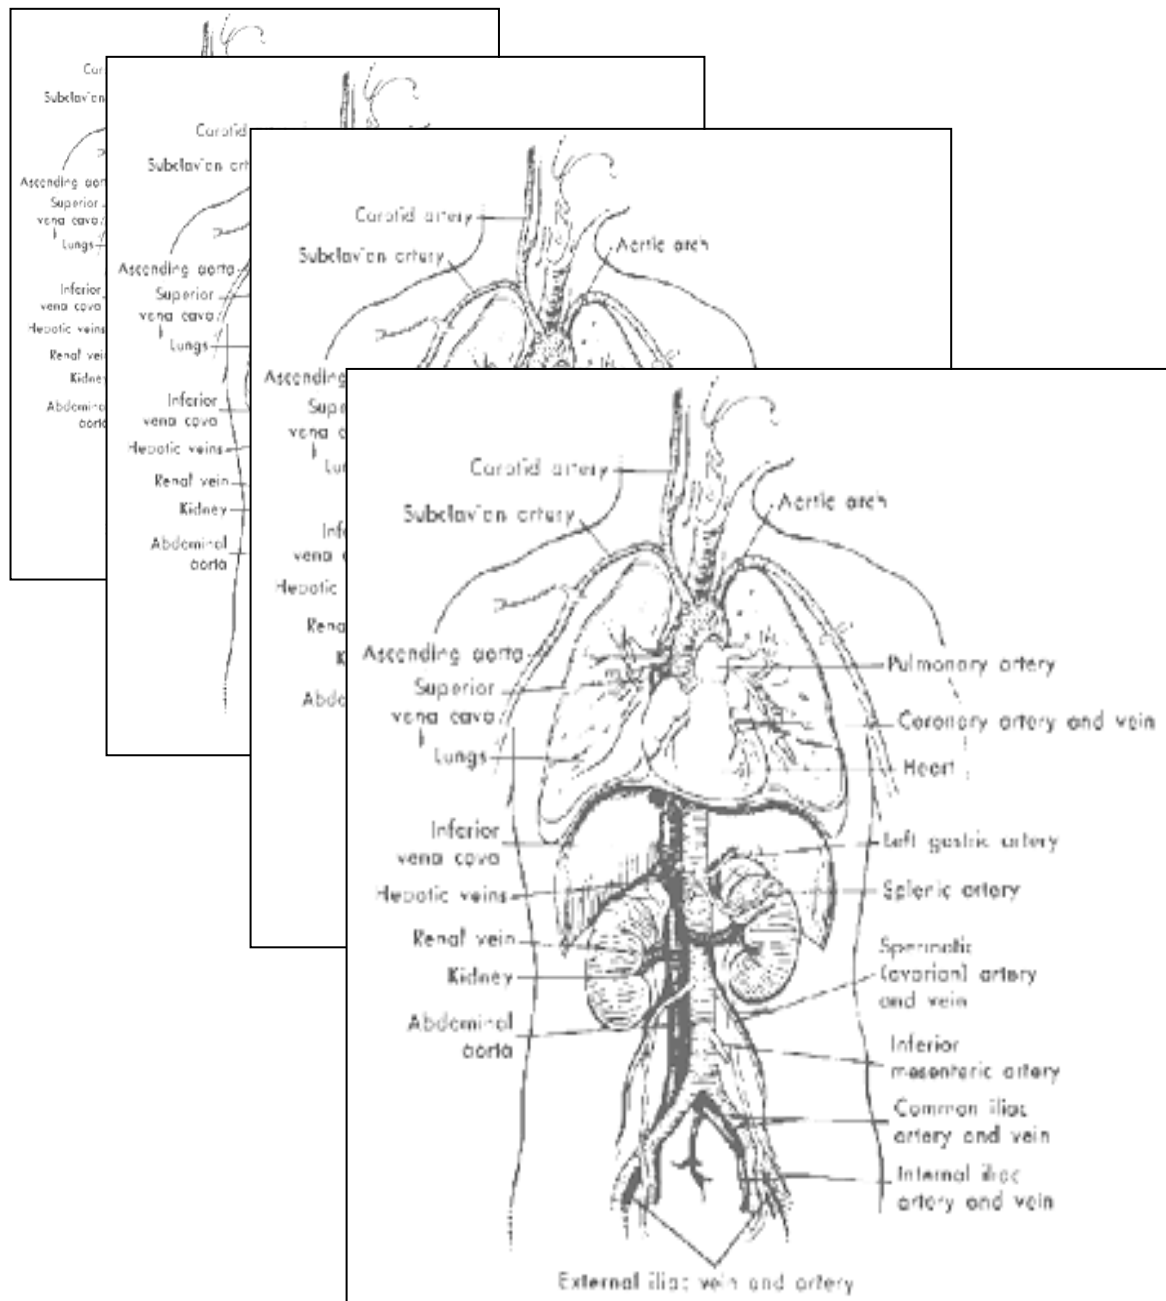 Car
Subclavian
Ascending aor
Superior
vena cava
Lungs
Inferior
vena cava
Hepatic veins
Renal vei
Kidney
Abdomina
aorta
Carotid
Subclavian art
Ascending aorta
Superior
vena cava
Lungs
Inferior
vena cava
Hepatic veins
Renal vein
Kidney
Abdominal
aorta
Carotid artery
Subclavian artery
Aortic arch
Ascending
Supe
vena c
Lu
Infe
vena c
Hepatic
Rena
K
Abdo
Carotid artery
Subclavian artery
Aortic arch
Ascending aorta
Superior
vena cava
Lungs
Inferior
vena cava
Hepatic veins
Renal vein
Kidney
Abdominal
aorta
Pulmonary artery
Coronary artery and vein
Heart
Left gastric artery
Splenic artery
Spermatic
(ovarian) artery
and vein
Inferior
mesenteric artery
Common iliac
artery and vein
Internal iliac
artery and vein
External iliac vein and artery